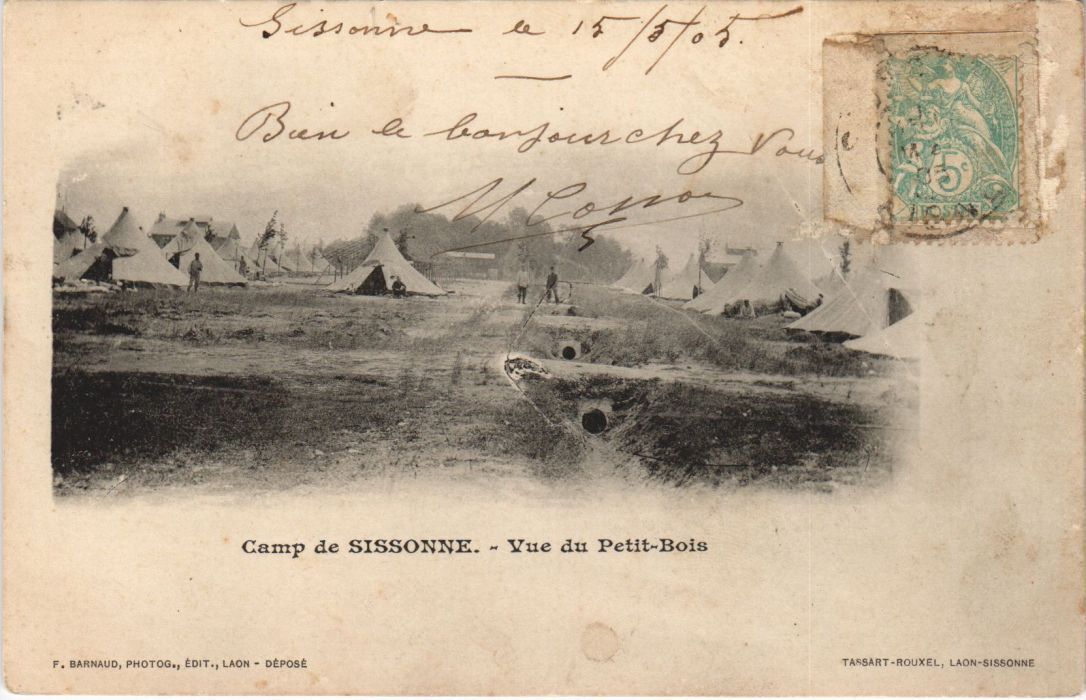 Sissonne le 15/5/05.
Bien le bonjour chez Vous
5
Camp de SISSONNE. - Vue du Petit-Bois
F. BARNAUD, PHOTOG., ÉDIT., LAON - DÉPOSÉ
TASSART-ROUXEL, LAON-SISSONNE